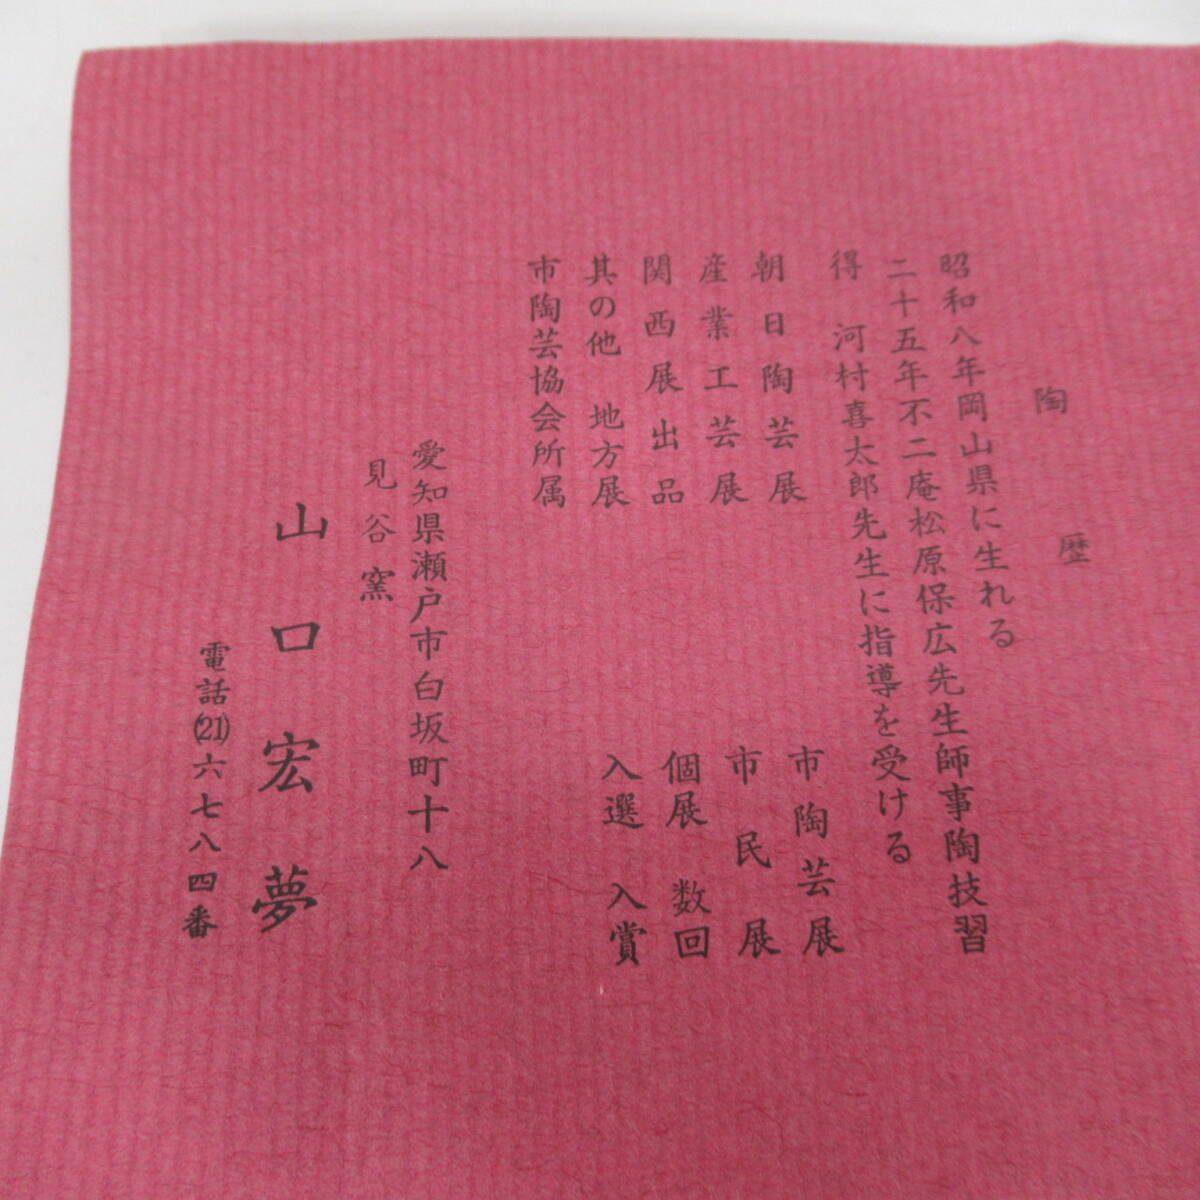 陶歴
昭和八年岡山県に生れる
二十五年不二庵松原保広先生師事陶技習
得 河村喜太郎先生に指導を受ける
朝日陶芸展 市陶芸展
産業工芸展 市民展
関西展出品 個展 数回
其の他 地方展 入選 入賞
市陶芸協会所属
愛知県瀬戸市白坂町十八
見谷窯
山口宏夢
電話(21)六七八四番